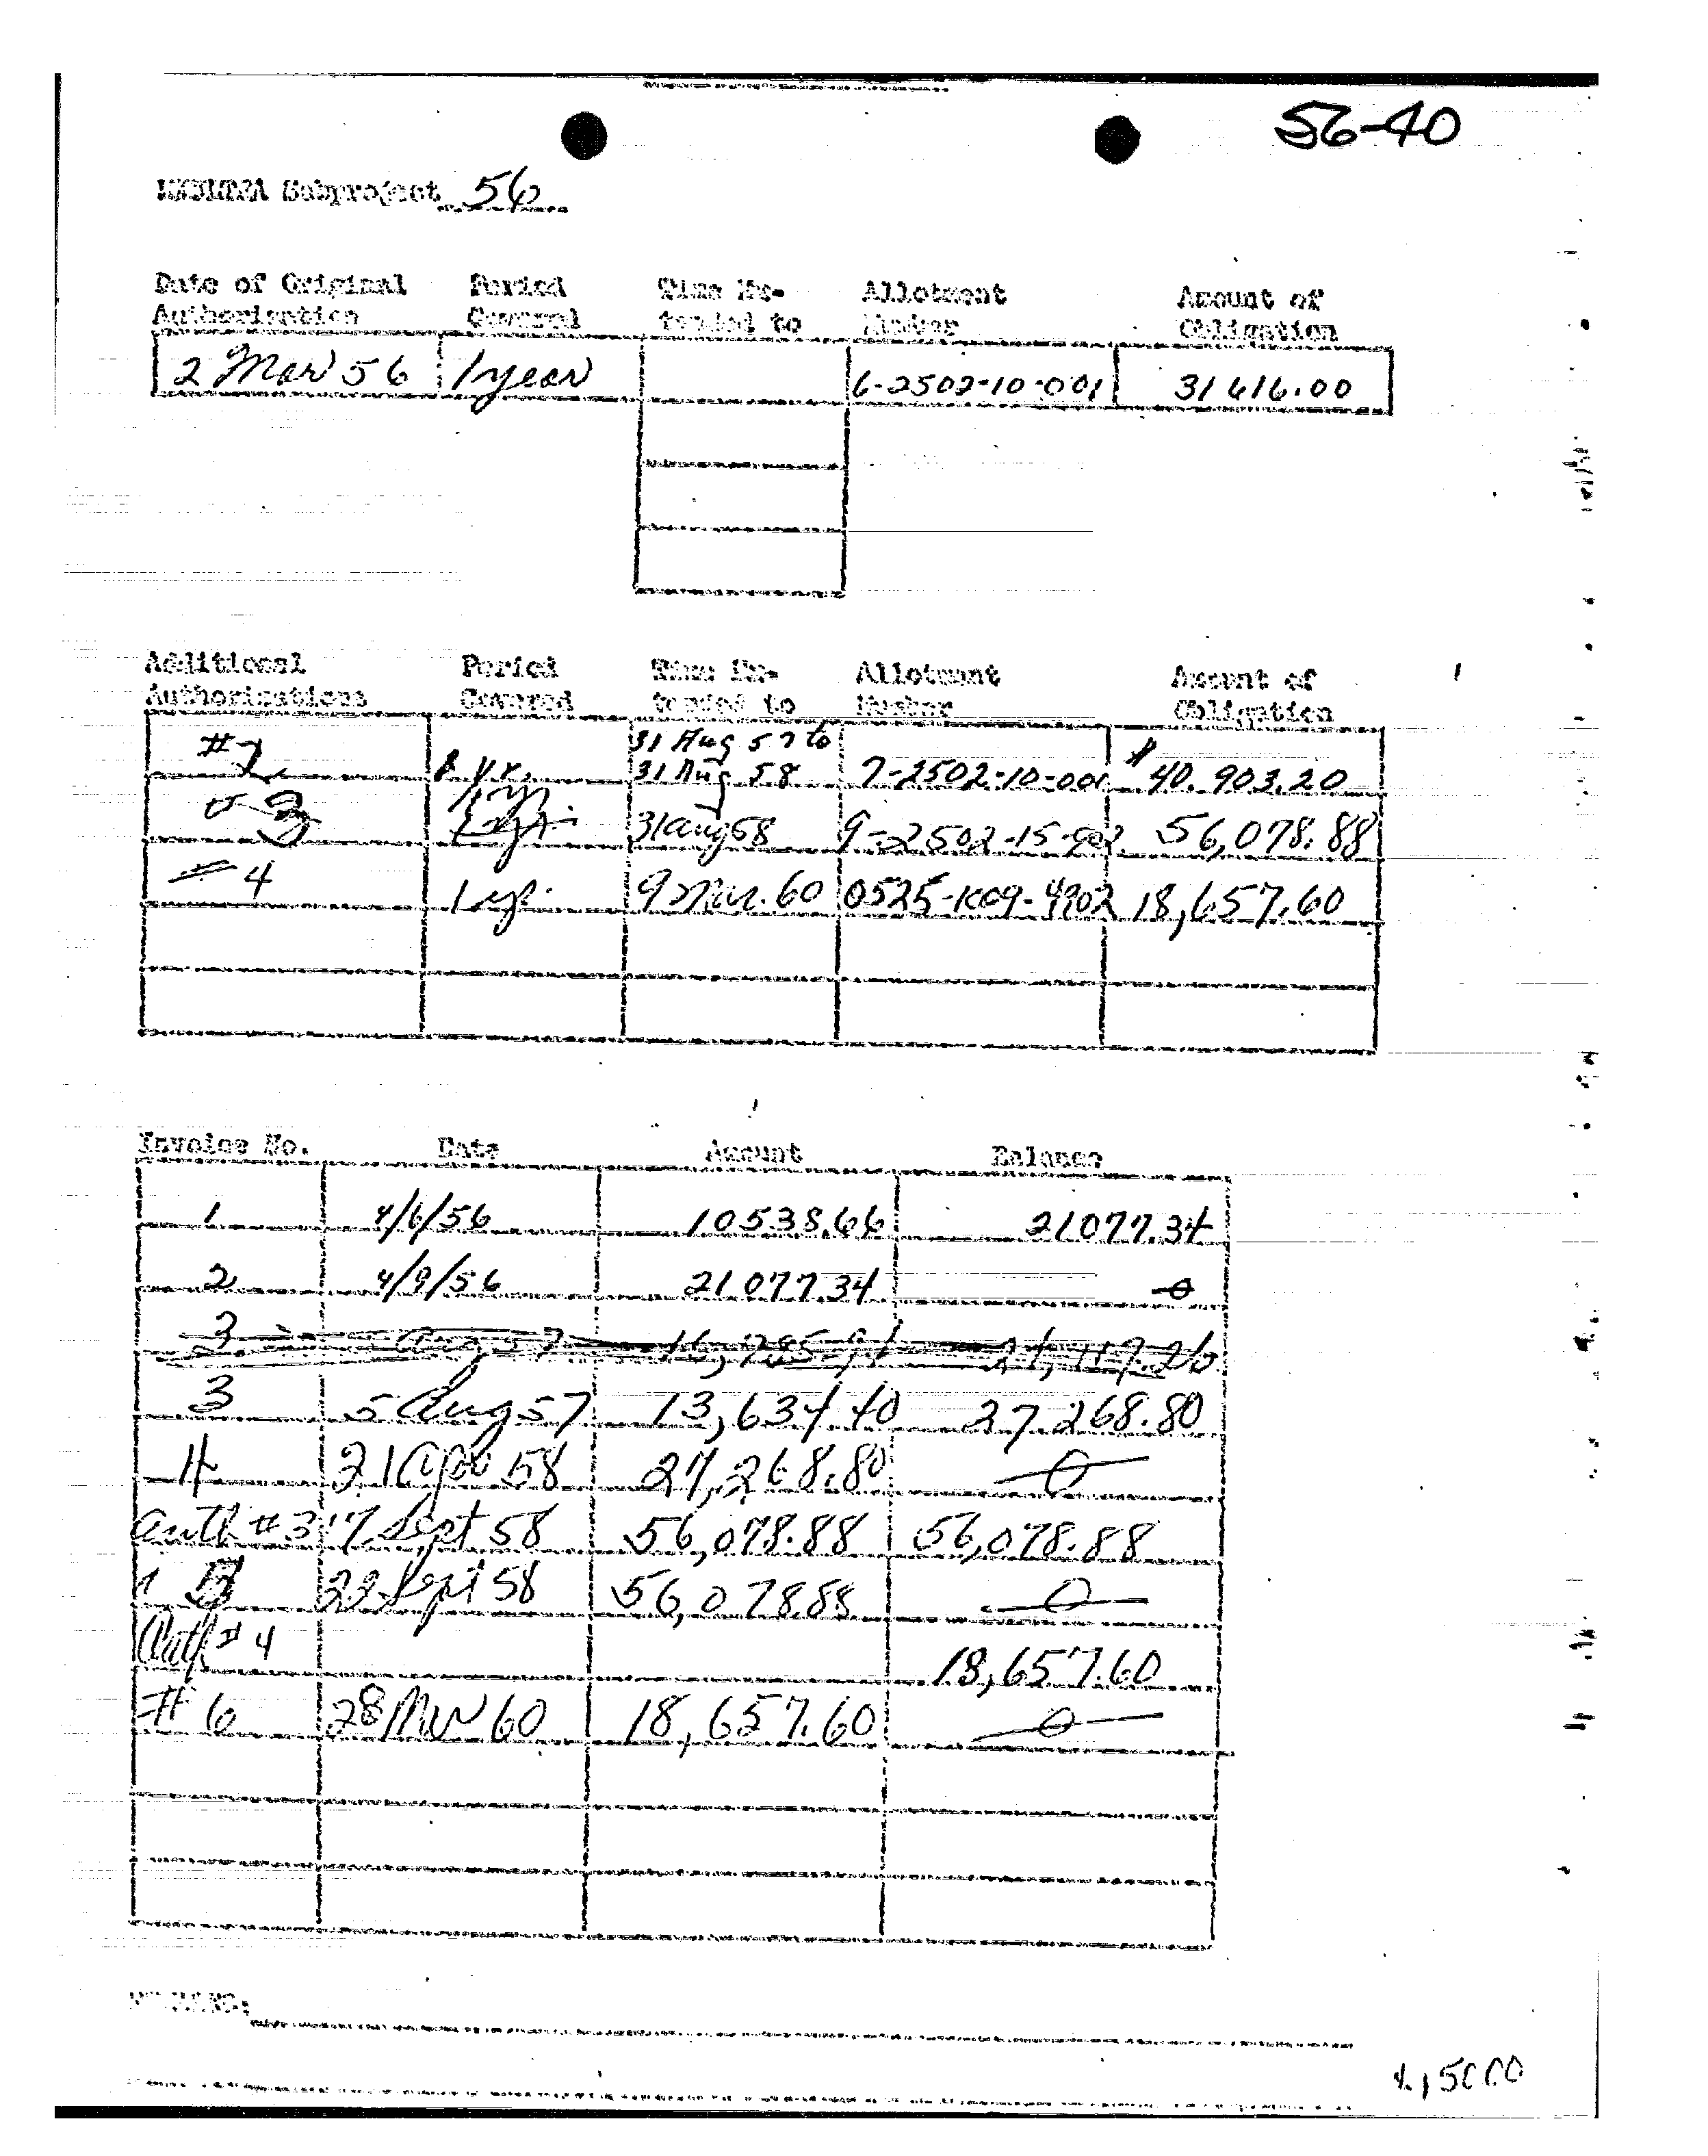 56-40
MKULTRA Subproject 56
Date of Original Period Time Ex- Allotment Amount of
Authorization Covered tended to Number Obligation
2 Mar 56 1 year 6-2502-10-001 31616.00
Additional Period Time Ex- Allotment Amount of
Authorizations Covered tended to Number Obligation
31 Aug 57 to
# 2 1 yr. 31 Aug 58 7-2502-10-001 $ 40.903.20
3 31 Aug 58 9-2502-15- 56,078.88
# 4 1 yr. 9 Mar. 60 0525-1009-4902 18,657.60
Invoice No. Date Amount Balance
1 4/6/56 10538.66 21077.34
2 4/9/56 21077.34 0
3 Aug 57 16, 24,
3 5 Aug 57 13,634.40 27.268.80
4 21 Apr 58 27,268.80 0
Auth # 3 17 Sept 58 56,078.88 56,078.88
5 23 Sept 58 56,078.88 0
Auth # 4 18,657.60
# 6 28 Mar 60 18,657.60 0
REMARKS: